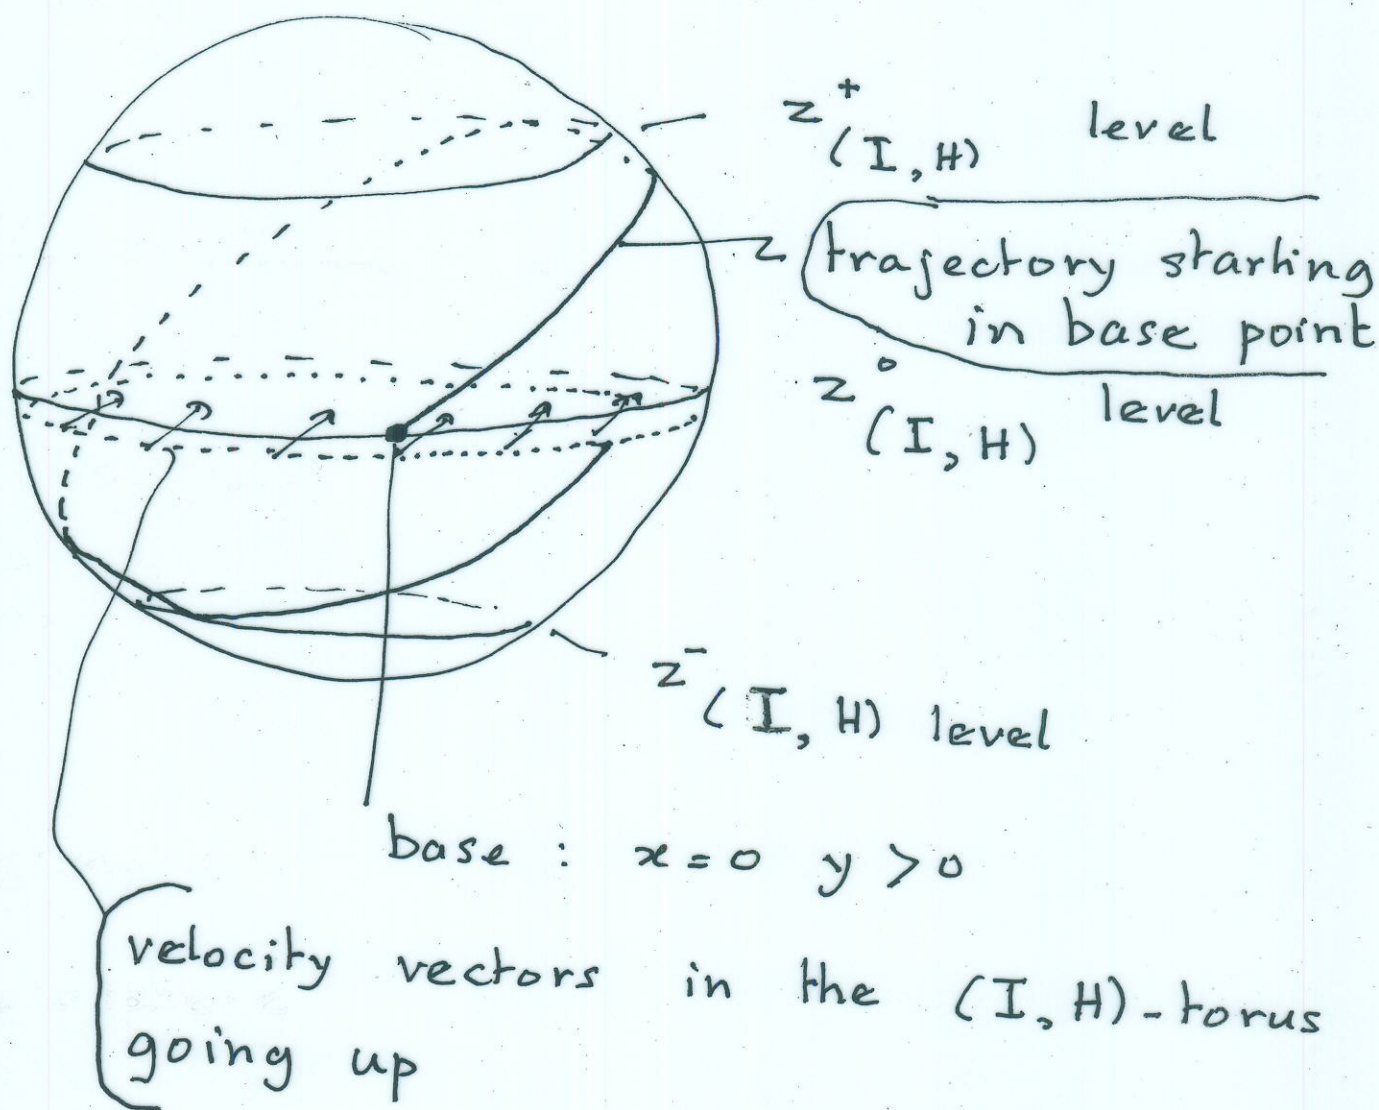 z⁺(I, H) level
trajectory starting
in base point
z⁰(I, H) level
z⁻(I, H) level
base : x = 0 y > 0
velocity vectors in the (I, H)-torus
going up